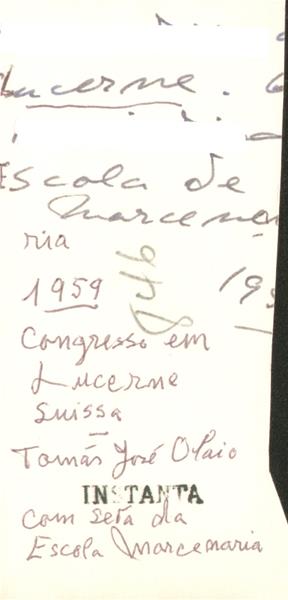 Lucerne.
Escola de
Marcena
ria
1959
846
Congresso em
Lucerne
Suissa
Tomás José Olaio
INSTANTA
com seta da
Escola Marcenaria